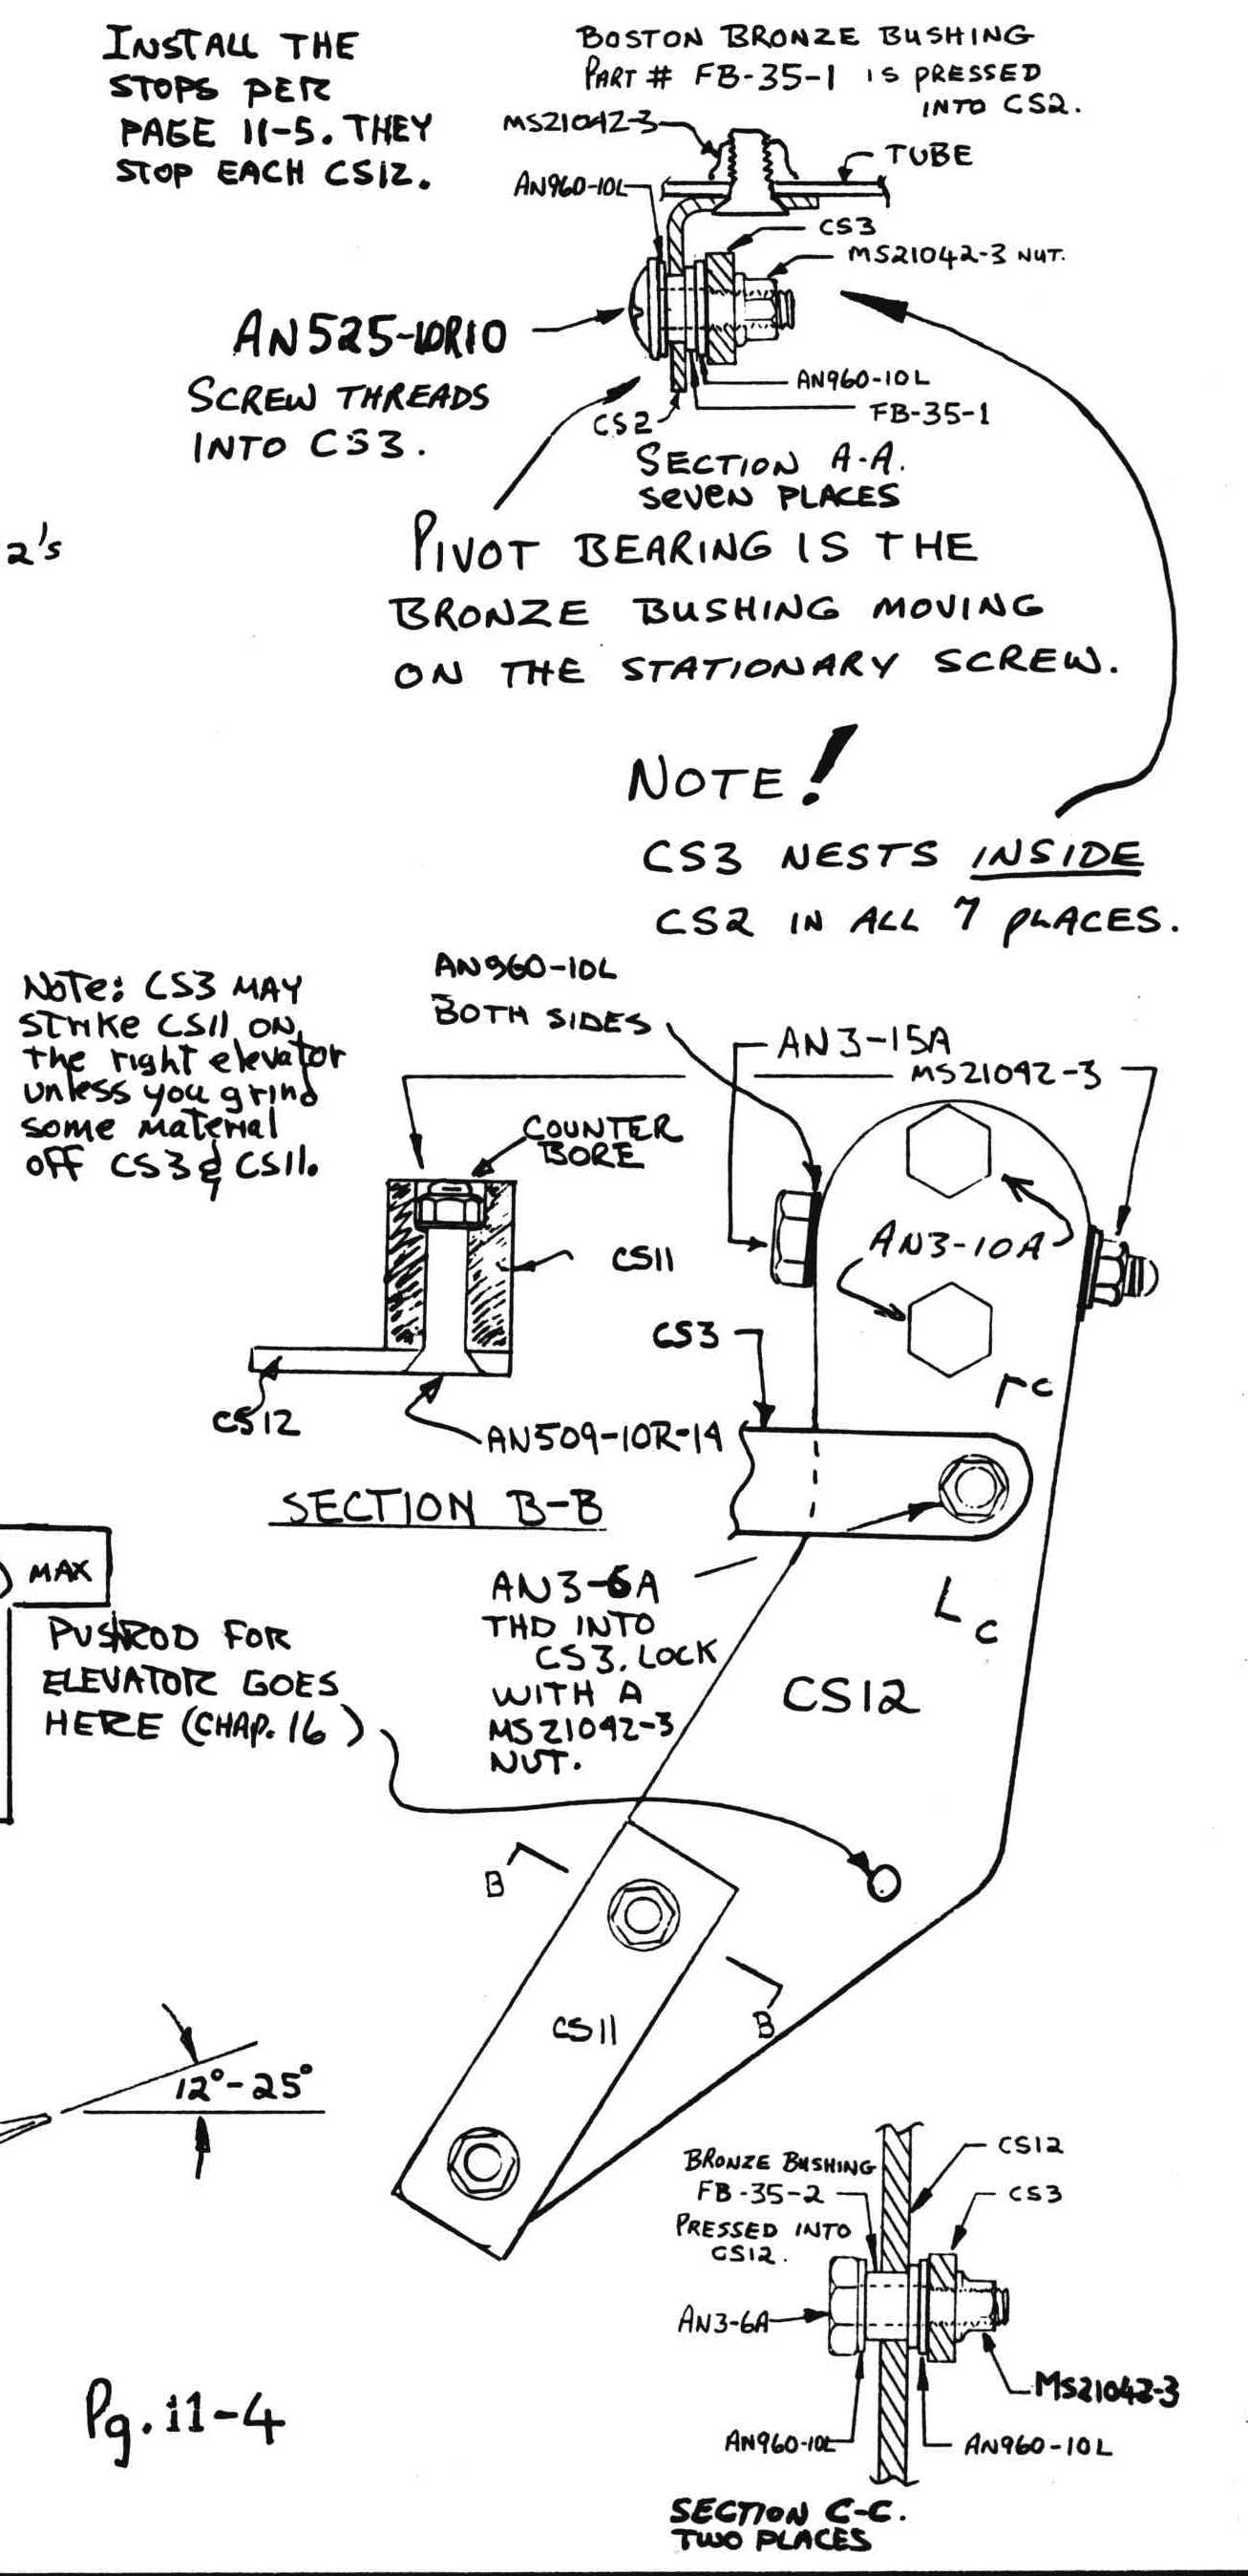 INSTALL THE
STOPS PER
PAGE 11-5. THEY
STOP EACH CS12.
BOSTON BRONZE BUSHING
PART # FB-35-1 IS PRESSED
INTO CS2.
MS21042-3
TUBE
AN960-10L
CS3
MS21042-3 NUT.
AN525-10R10
SCREW THREADS
INTO CS3.
AN960-10L
FB-35-1
CS2
SECTION A-A.
SEVEN PLACES
2's
PIVOT BEARING IS THE
BRONZE BUSHING MOVING
ON THE STATIONARY SCREW.
NOTE!
CS3 NESTS INSIDE
CS2 IN ALL 7 PLACES.
NOTE: CS3 MAY
STRIKE CS11 ON
the right elevator
unless you grind
some material
OFF CS3 & CS11.
AN960-10L
BOTH SIDES
AN3-15A
MS21042-3
COUNTER
BORE
CS11
AN3-10A
CS3
CS12
AN509-10R-14
C
SECTION B-B
MAX
AN3-6A
THD INTO
CS3. LOCK
WITH A
MS21042-3
NUT.
C
PUSHROD FOR
ELEVATOR GOES
HERE (CHAP. 16)
CS12
B
CS11
B
12°-25°
BRONZE BUSHING
FB-35-2
PRESSED INTO
CS12.
CS12
CS3
AN3-6A
MS21042-3
AN960-10L
AN960-10L
Pg. 11-4
SECTION C-C.
TWO PLACES